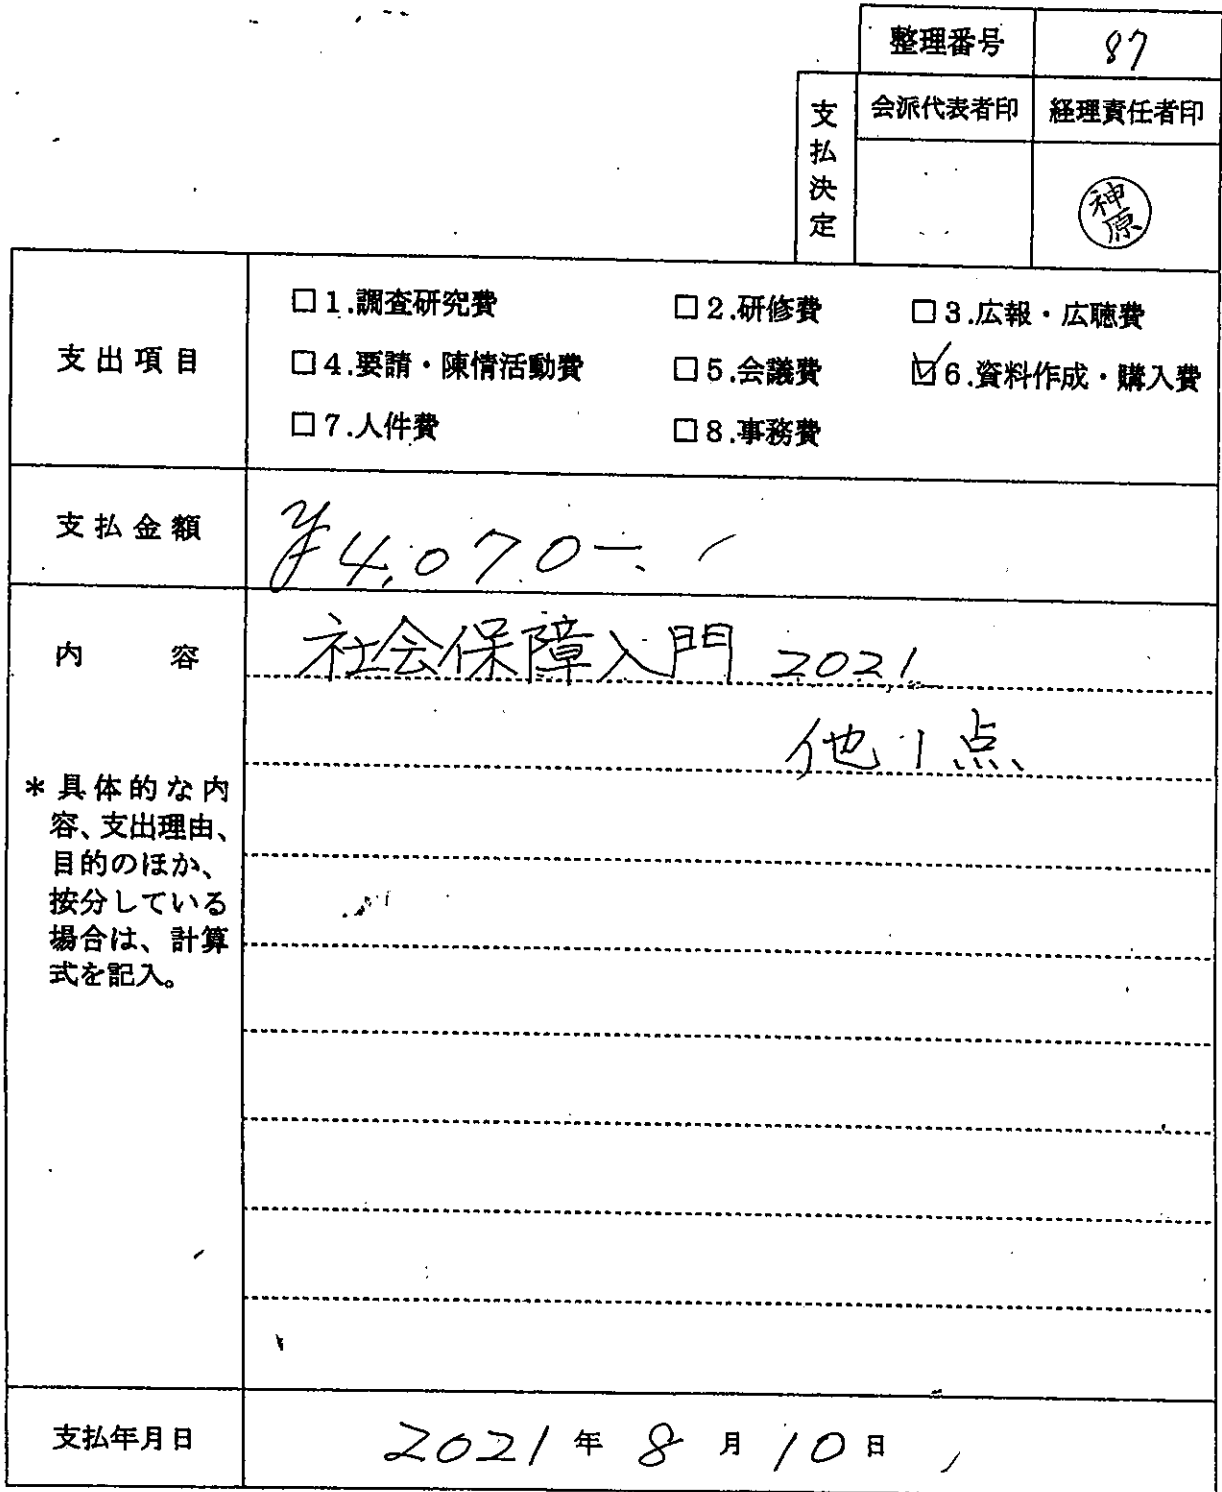 整理番号 87
支払決定
会派代表者印 経理責任者印
神原
支出項目
□1.調査研究費 □2.研修費 □3.広報・広聴費
□4.要請・陳情活動費 □5.会議費 ☑6.資料作成・購入費
□7.人件費 □8.事務費
支払金額 ¥4,070-
内容 社会保障入門 2021
他1点
*具体的な内
容、支出理由、
目的のほか、
按分している
場合は、計算
式を記入。
支払年月日 2021年8月10日